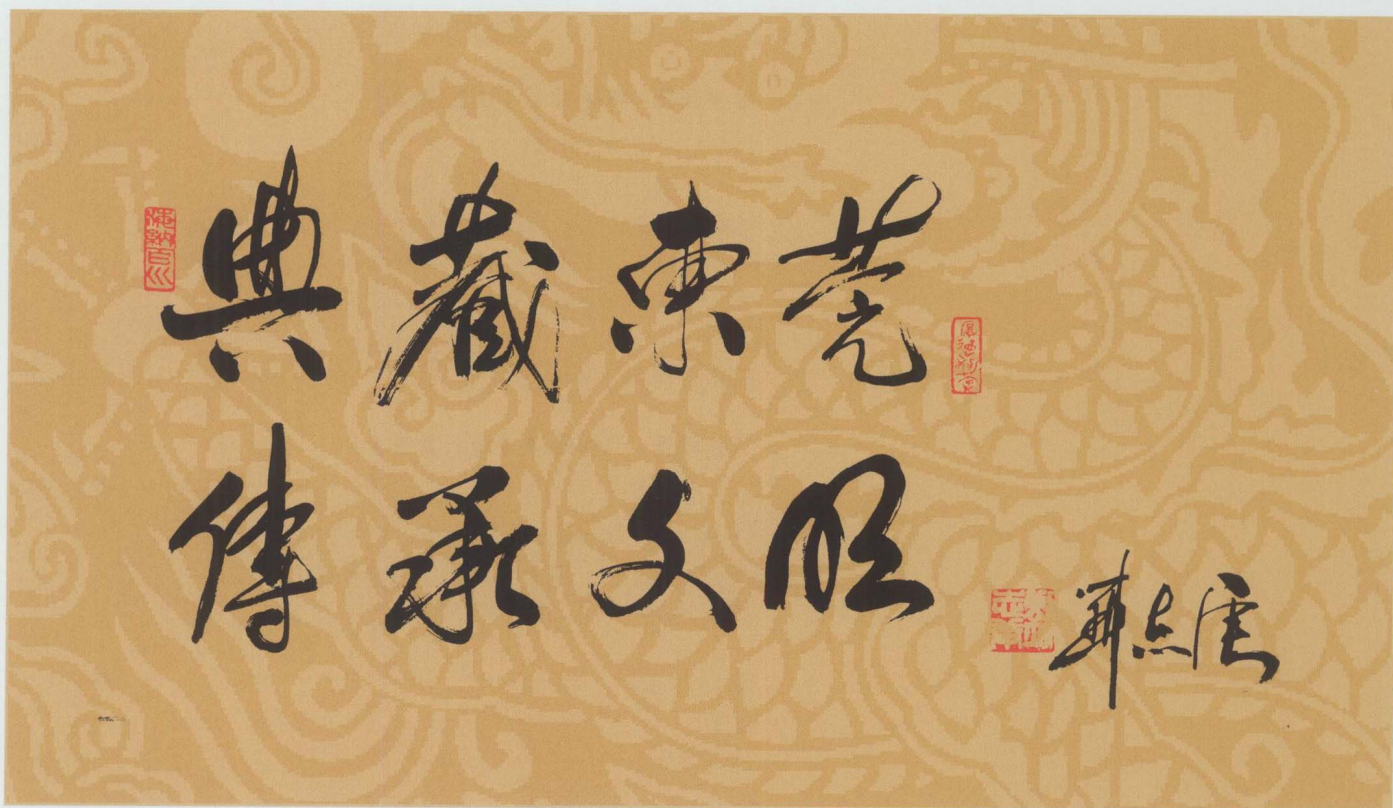 典藏東莞
傳承文明